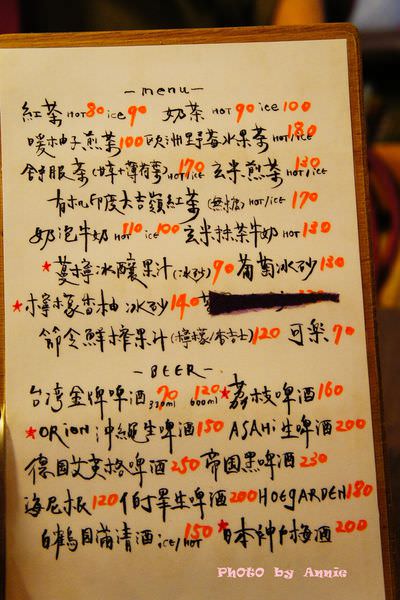 -menu-
紅茶 HOT 80 ice 90 奶茶 HOT 90 ice 100
暖柚子煎茶 100 歐洲野莓水果茶 HOT/ice 180
舒服茶(甘草+薄荷茶) HOT/ice 170 玄米煎茶 HOT/ice 130
有机印度大吉嶺紅茶(無糖) HOT/ice 170
奶泡牛奶 HOT 110 ice 100 玄米抹茶牛奶 HOT 130
★蔓檸冰釀果汁(冰砂) 90 葡萄冰砂 130
★檸檬香柚冰砂 140
節令鮮榨果汁(檸檬/吉士) 120 可樂 70
-BEER-
台湾金牌啤酒 70 330ml 120 600ml ★荔枝啤酒 160
★ORION沖繩生啤酒 150 ASAHi生啤酒 200
德国艾英格啤酒 250 帝国黑啤酒 230
海尼根 120 伯丁罩生啤酒 200 HOEGARDEN 180
白鶴月滿清酒 ice/HOT 150 ★日本紳士梅酒 200
PHOTO by Annie